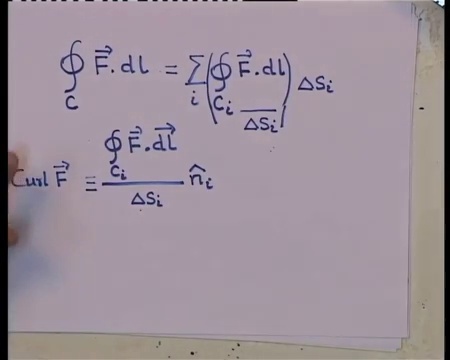 ∮_C F⃗.dl = Σ_i (∮_{C_i} F⃗.dl / ΔS_i) ΔS_i
Curl F⃗ ≡ ∮_{C_i} F⃗.dl⃗ / ΔS_i n̂_i